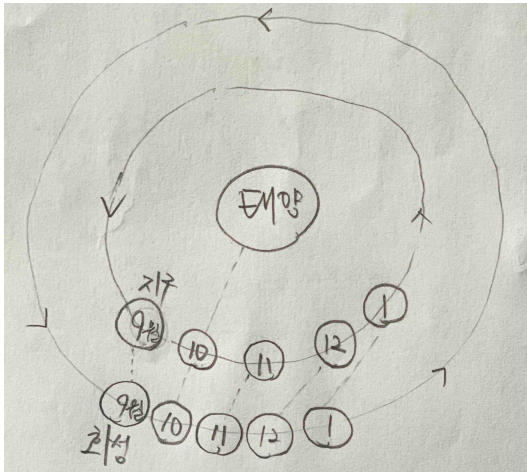 태양
지구
9월
10
11
12
1
9월
10
11
12
1
화성